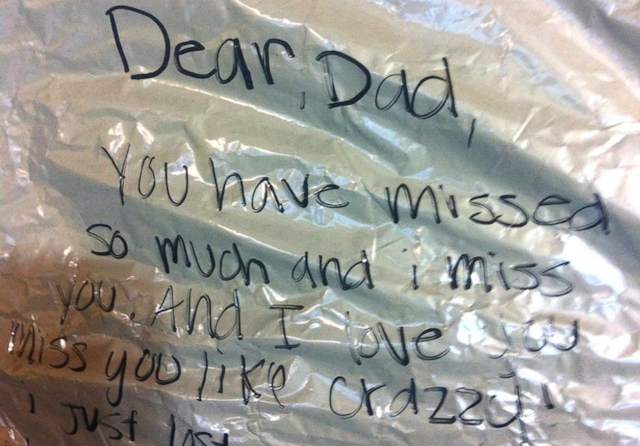 Dear, Dad,
You have missed
so much and i miss
you. And I love you
miss you like crazzy!
i Just lost